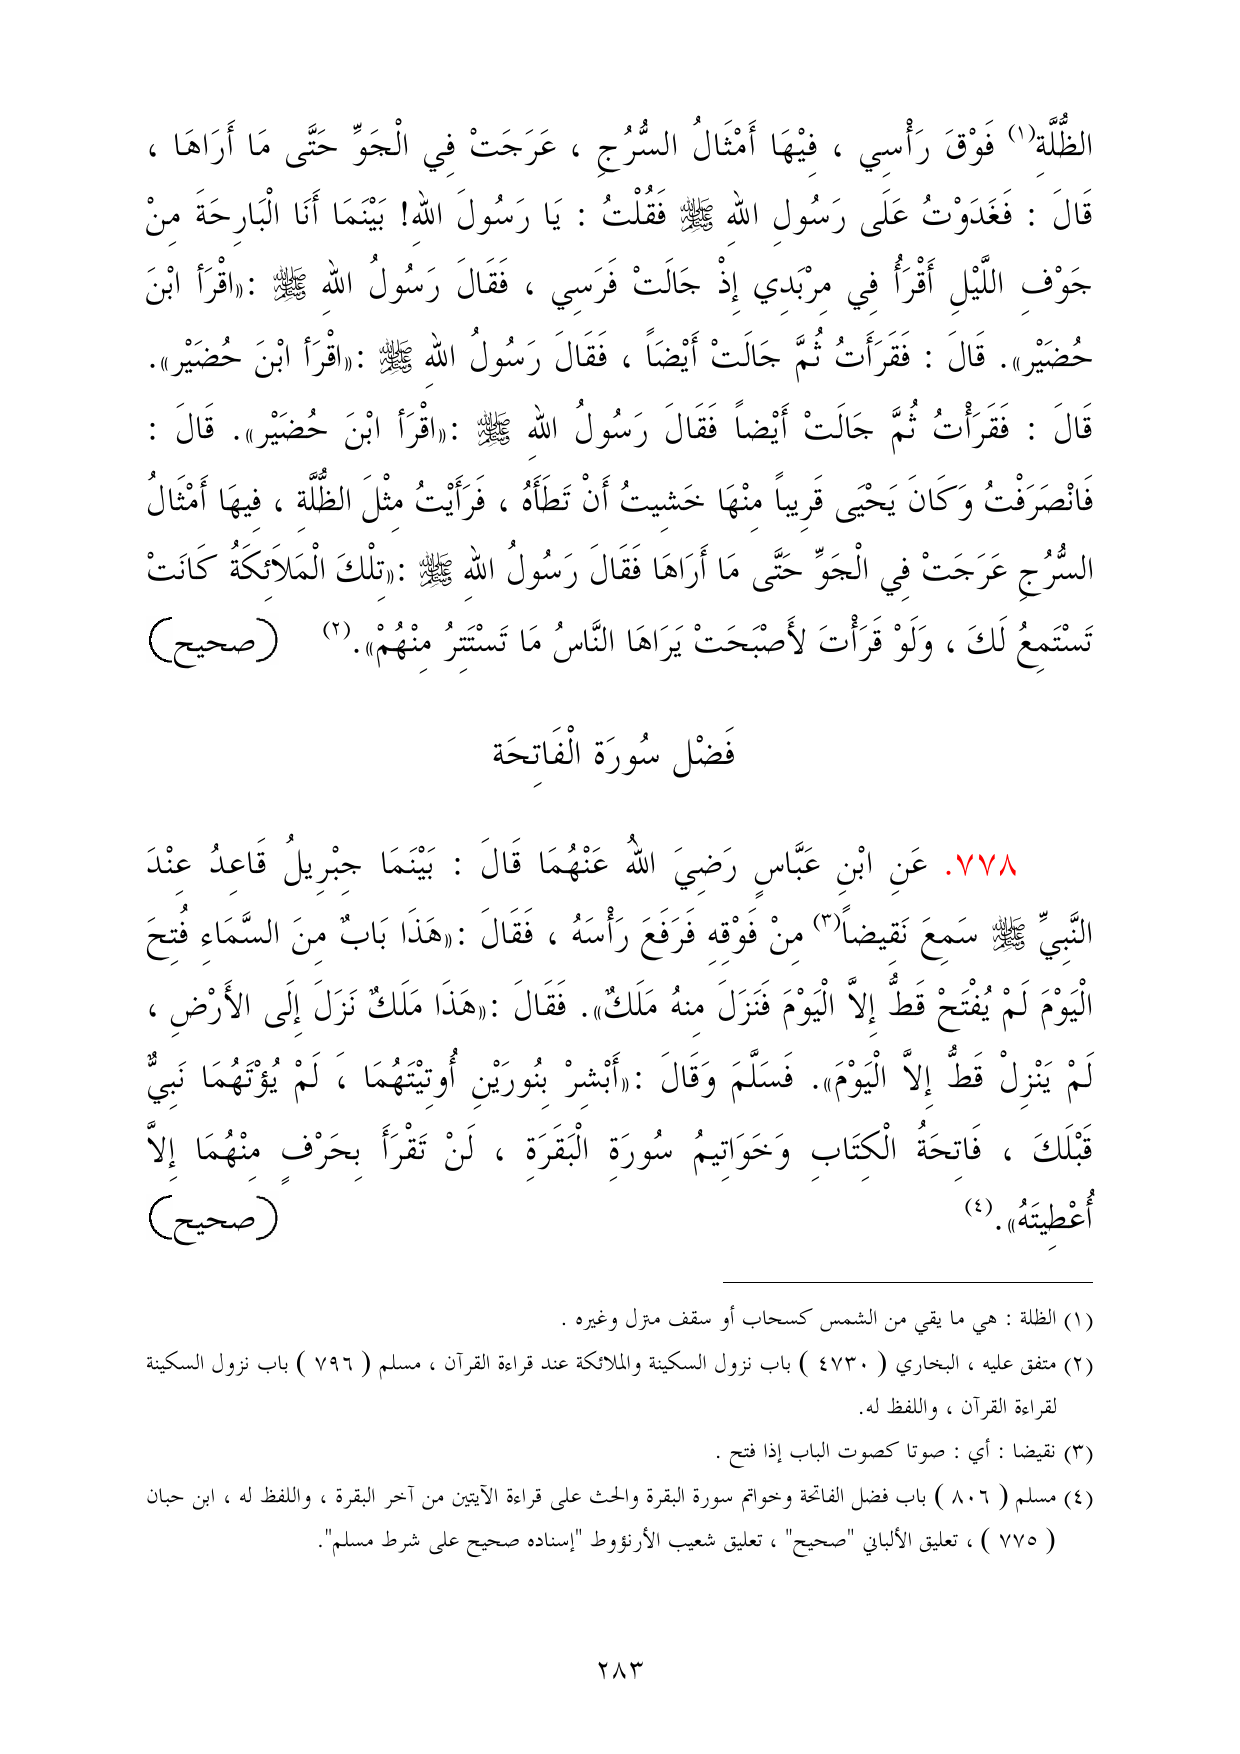 الظُّلَّةِ(١) فَوْقَ رَأْسِي ، فِيْهَا أَمْثَالُ السُّرُجِ ، عَرَجَتْ فِي الْجَوِّ حَتَّى مَا أَرَاهَا ،
قَالَ : فَغَدَوْتُ عَلَى رَسُولِ اللهِ ﷺ فَقُلْتُ : يَا رَسُولَ اللهِ! بَيْنَمَا أَنَا الْبَارِحَةَ مِنْ
جَوْفِ اللَّيْلِ أَقْرَأُ فِي مِرْبَدِي إِذْ جَالَتْ فَرَسِي ، فَقَالَ رَسُولُ اللهِ ﷺ :«اقْرَأ ابْنَ
حُضَيْر». قَالَ : فَقَرَأَتُ ثُمَّ جَالَتْ أَيْضَاً ، فَقَالَ رَسُولُ اللهِ ﷺ :«اقْرَأ ابْنَ حُضَيْر».
قَالَ : فَقَرَأْتُ ثُمَّ جَالَتْ أَيْضاً فَقَالَ رَسُولُ اللهِ ﷺ :«اقْرَأ ابْنَ حُضَيْر». قَالَ :
فَانْصَرَفْتُ وَكَانَ يَحْيَى قَرِيباً مِنْهَا خَشِيتُ أَنْ تَطَأَهُ ، فَرَأَيْتُ مِثْلَ الظُّلَّةِ ، فِيهَا أَمْثَالُ
السُّرُجِ عَرَجَتْ فِي الْجَوِّ حَتَّى مَا أَرَاهَا فَقَالَ رَسُولُ اللهِ ﷺ :«تِلْكَ الْمَلاَئِكَةُ كَانَتْ
تَسْتَمِعُ لَكَ ، وَلَوْ قَرَأْتَ لأَصْبَحَتْ يَرَاهَا النَّاسُ مَا تَسْتَتِرُ مِنْهُمْ».(٢) (صحيح)
فَضْل سُورَة الْفَاتِحَة
٧٧٨. عَنِ ابْنِ عَبَّاسٍ رَضِيَ اللهُ عَنْهُمَا قَالَ : بَيْنَمَا جِبْرِيلُ قَاعِدُ عِنْدَ
النَّبِيِّ ﷺ سَمِعَ نَقِيضاً(٣) مِنْ فَوْقِهِ فَرَفَعَ رَأْسَهُ ، فَقَالَ :«هَذَا بَابٌ مِنَ السَّمَاءِ فُتِحَ
الْيَوْمَ لَمْ يُفْتَحْ قَطُّ إِلاَّ الْيَوْمَ فَنَزَلَ مِنهُ مَلَكٌ». فَقَالَ :«هَذَا مَلَكٌ نَزَلَ إِلَى الأَرْضِ ،
لَمْ يَنْزِلْ قَطُّ إِلاَّ الْيَوْمَ». فَسَلَّمَ وَقَالَ :«أَبْشِرْ بِنُورَيْنِ أُوتِيْتَهُمَا ، لَمْ يُؤْتَهُمَا نَبِيٌّ
قَبْلَكَ ، فَاتِحَةُ الْكِتَابِ وَخَوَاتِيمُ سُورَةِ الْبَقَرَةِ ، لَنْ تَقْرَأَ بِحَرْفٍ مِنْهُمَا إِلاَّ
أُعْطِيتَهُ».(٤) (صحيح)
(١) الظلة : هي ما يقي من الشمس كسحاب أو سقف منزل وغيره .
(٢) متفق عليه ، البخاري ( ٤٧٣٠ ) باب نزول السكينة والملائكة عند قراءة القرآن ، مسلم ( ٧٩٦ ) باب نزول السكينة
لقراءة القرآن ، واللفظ له.
(٣) نقيضا : أي : صوتا كصوت الباب إذا فتح .
(٤) مسلم ( ٨٠٦ ) باب فضل الفاتحة وخواتم سورة البقرة والحث على قراءة الآيتين من آخر البقرة ، واللفظ له ، ابن حبان
( ٧٧٥ ) ، تعليق الألباني "صحيح" ، تعليق شعيب الأرنؤوط "إسناده صحيح على شرط مسلم".
٢٨٣